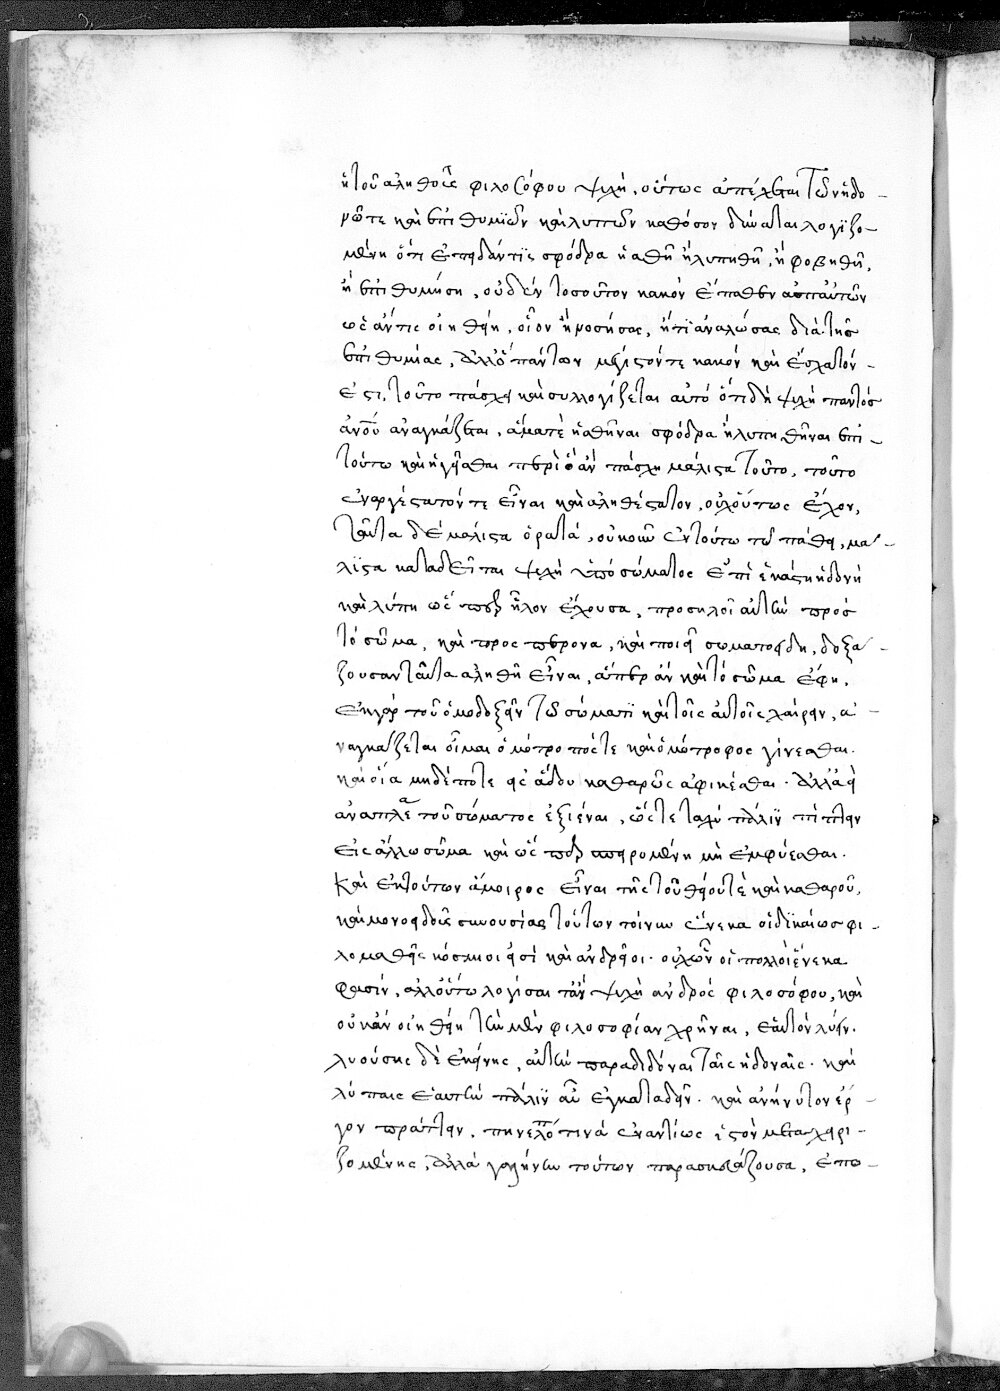 ἡ τοῦ ἀληθοῦς φιλοσόφου ψυχὴ, οὕτως ἀπέχεται τῶν ἡδο-
νῶν τε καὶ ἐπιθυμιῶν καὶ λυπῶν καθόσον δύναται λογιζο-
μένη ὅτι ἐπειδάν τις σφόδρα ἡσθῆ ἢ λυπηθῆ, ἢ φοβηθῆ,
ἢ ἐπιθυμήση, οὐδὲν τοσοῦτον κακὸν ἔπαθεν ἀπ' αὐτῶν
ὡς ἄν τις οἰηθείη, οἷον ἢ νοσήσας, ἤ τι ἀναλώσας διὰ τὰς
ἐπιθυμίας, ἀλλ' ὃ πάντων μέγιστόν τε κακὸν καὶ ἔσχατόν
ἐστι, τοῦτο πάσχει καὶ συλλογίζεται αὐτό ὅτι δὴ ψυχὴ παντὸς
ἀνου ἀναγκάζεται, ἅμα τε ἡσθῆναι σφόδρα ἢ λυπηθῆναι ἐπὶ
τούτω καὶ ἡγεῖσθαι περὶ ὃ ἂν πάσχη μάλιστα τοῦτο, τοῦτο
ἐναργέστατόν τε εἶναι καὶ ἀληθέστατον, οὐχ οὕτως ἔχον,
ταῦτα δὲ μάλιστα ὁρατά, οὐκοῦν ἐν τούτω τῶ πάθει, μά-
λιστα καταδεῖται ψυχὴ ὑπὸ σώματος ἐπὶ ἑκάστη ἡδονὴ
καὶ λύπη ὥσπερ ἧλον ἔχουσα, προσηλοῖ αὐτὴν πρὸς
τὸ σῶμα, καὶ προςπερονᾶ, καὶ ποιεῖ σωματοειδῆ, δοξά-
ζουσαν ταῦτα ἀληθῆ εἶναι, ἅπερ ἂν καὶ τὸ σῶμα ἔφη.
ἐκ γὰρ τοῦ ὁμοδοξεῖν τῶ σώματι καὶ τοῖς αὐτοῖς χαίρειν, ἀ-
ναγκάζεται οἶμαι ὁμότροπός τε καὶ ὁμότροφος γίνεσθαι.
καὶ οἵα μηδέποτε εἰς ἅδου καθαρῶς ἀφικέσθαι. ἀλλὰ ἀεὶ
ἀναπλέα τοῦ σώματος ἐξιέναι, ὥστε ταχὺ πάλιν πίπτειν
εἰς ἄλλο σῶμα καὶ ὥσπερ σπειρομένη μὴ ἐμφύεσθαι.
Καὶ ἐκ τούτων ἄμοιρος εἶναι τῆς τοῦ θείου τὲ καὶ καθαροῦ,
καὶ μονοειδοῦς συνουσίας τούτων τοίνυν ἕνεκα οἱ δικαίως φι-
λομαθεῖς κόσμιοι εἰσὶ καὶ ἀνδρεῖοι. οὐχ ὧν οἱ πολλοὶ ἕνεκα
φασίν, ἀλλ' οὕτω λογίσαιτ' ἂν ψυχὴ ἀνδρὸς φιλοσόφου, καὶ
οὐκ ἂν οἰηθείη τὴν μὲν φιλοσοφίαν χρῆναι, ἑαυτὸν λύειν.
λυούσης δὲ ἐκείνης, αὐτὴν παραδιδόναι ταῖς ἡδοναῖς. καὶ
λύπαις ἑαυτὴν πάλιν αὖ ἐγκαταδεῖν. καὶ ἀνήνυτον ἔρ-
γον πράττειν, πηνελόπη τινὰ ἐναντίως ἱστὸν μεταχειρι-
ζομένης, ἀλλὰ γαλήνην τούτων παρασκευάζουσα, ἑπο-